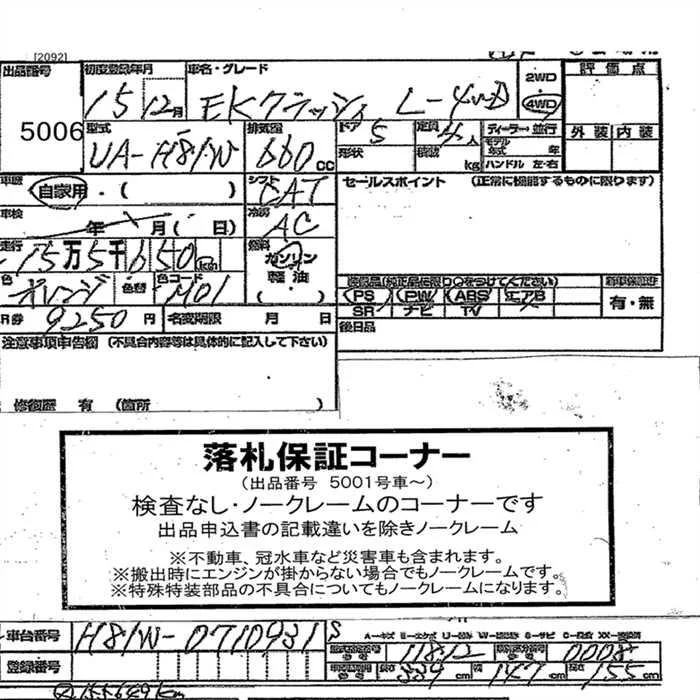 [2092]
出品番号 初度登録年月 車名・グレード 2WD 評価点
15 12月 EKクラッシィ L-4WD 4WD
5006 型式 排気量 ドア 5 定員 4人 ディーラー・並行 外装 内装
UA-H81W 660cc 形状 積載 kg モデル年式 年 ハンドル 左・右
車歴 自家用・( ) シフト CAT セールスポイント (正常に機能するものに限ります)
車検 年 月( 日) 冷房 AC
走行 15万5千650km 燃料 ガソリン 軽油 (・)
色 オレンジ 色替 色コード M01 装備品(純正品に限り○をつけてください)
PS PW ABS エアB 有・無
SR ナビ TV
R券 9250円 名変期限 月 日 後日品
注意事項申告欄(不具合内容等は具体的に記入して下さい)
修復歴 有 (箇所 )
落札保証コーナー
(出品番号 5001号車~)
検査なし・ノークレームのコーナーです
出品申込書の記載違いを除きノークレーム
※不動車、冠水車など災害車も含まれます。
※搬出時にエンジンが掛からない場合でもノークレームです。
※特殊特装部品の不具合についてもノークレームになります。
車台番号 H81W-0710931 S
登録番号 11812 0008
長さ 339cm 幅 147cm 高さ 155cm